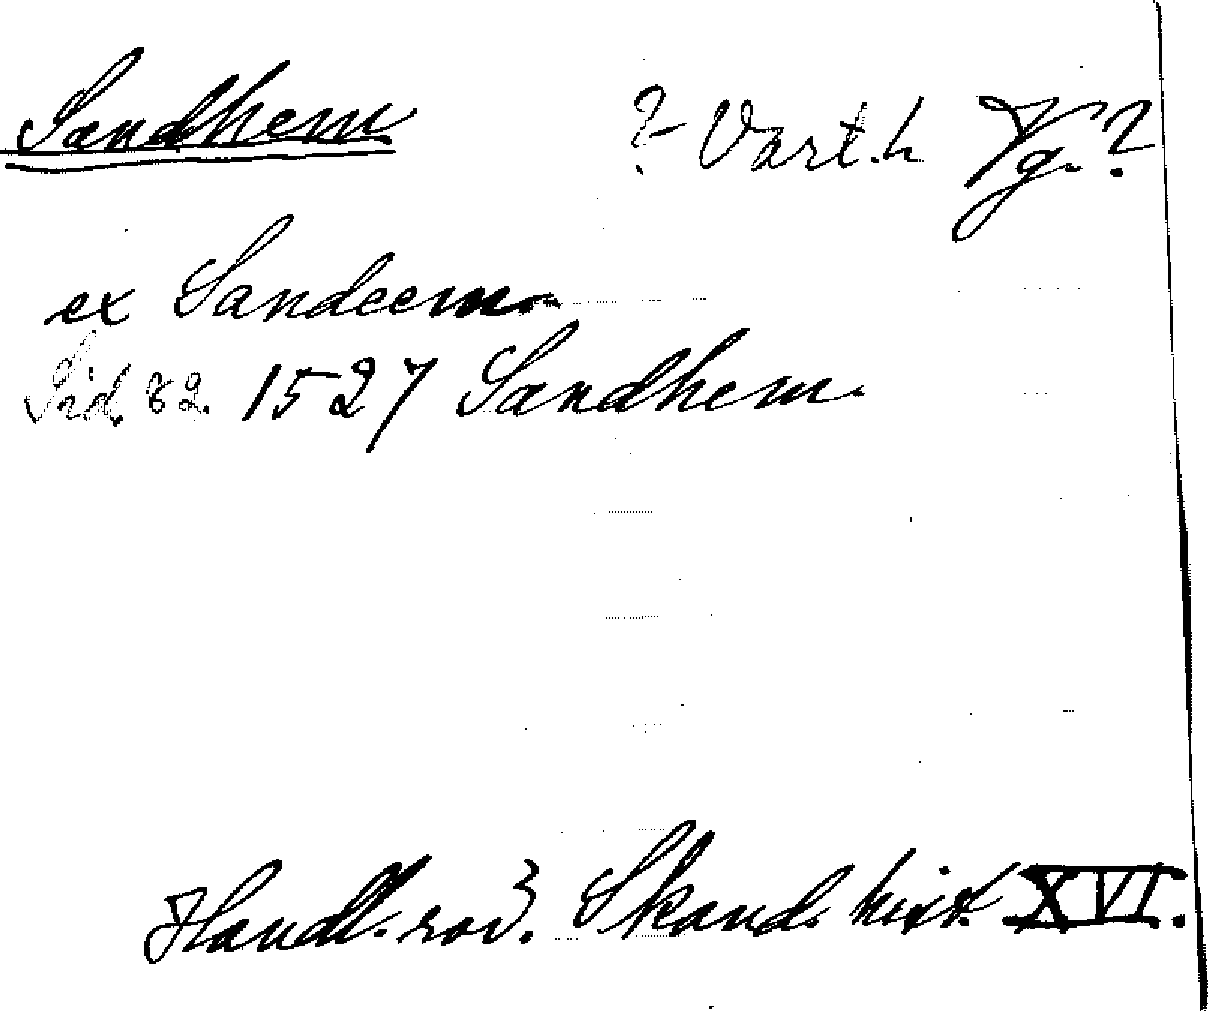 Sandhem ? Vart. h Vg. ?
ex Sandeem.
Sid. 82. 1527 Sandhem.
Handl. röd. Skand. hist. XVI.